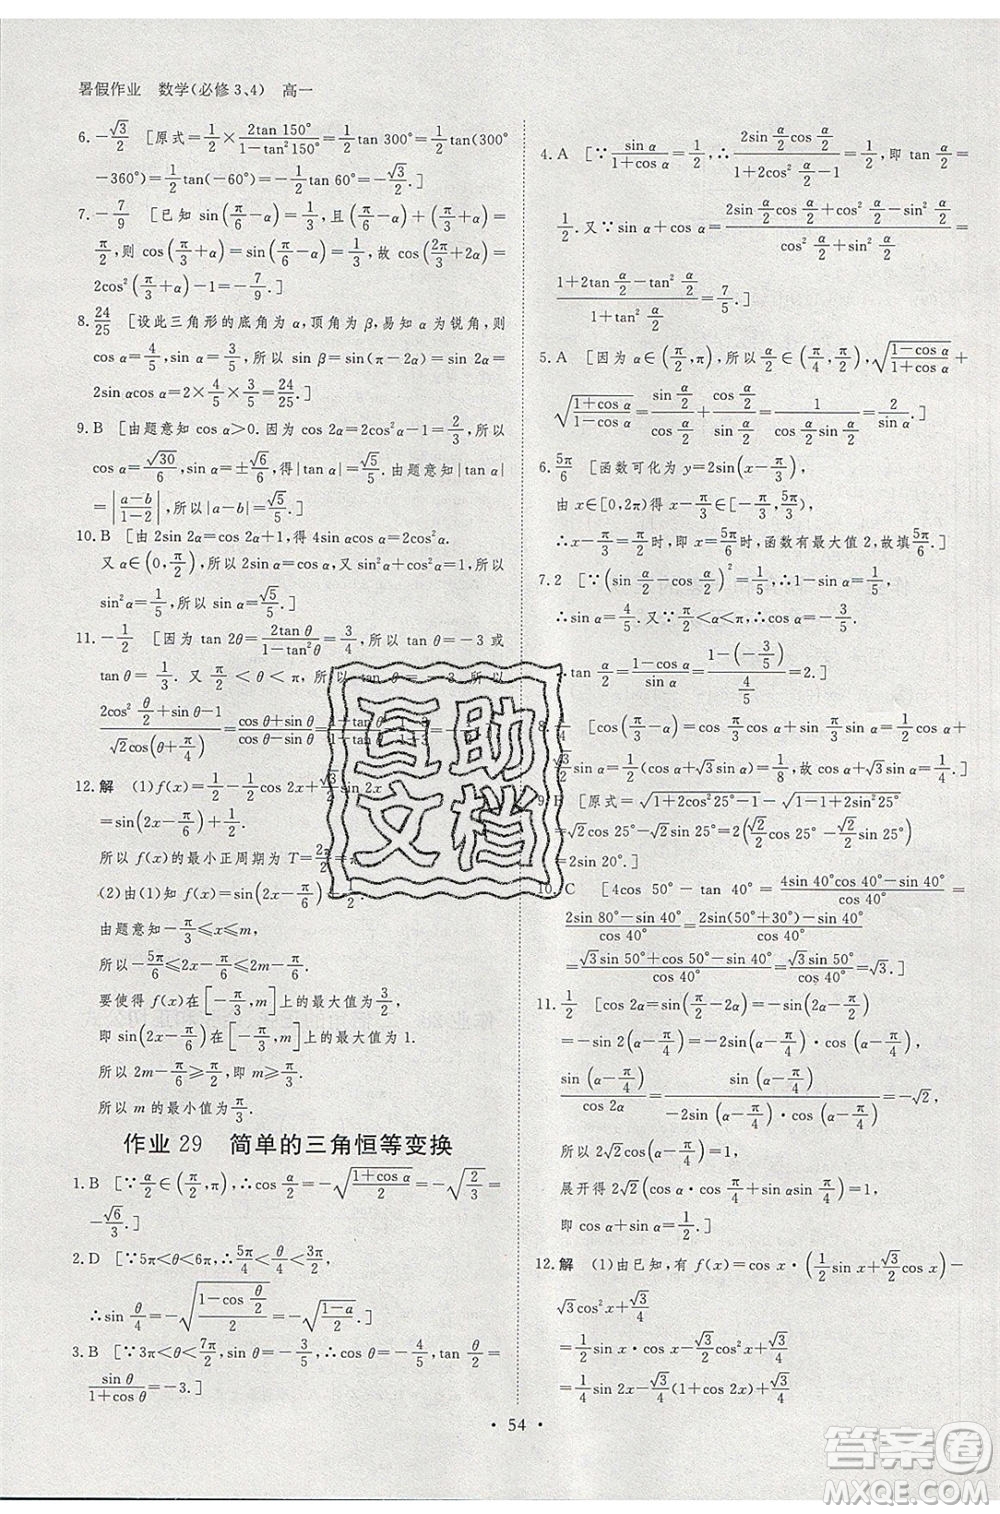 暑假作业 数学(必修3、4) 高一
6. -√3/2 [原式=1/2×2tan 150°/(1-tan² 150°)=1/2 tan 300°=1/2 tan(300°
-360°)=1/2 tan(-60°)=-√3/2.]
7. -7/9 [已知 sin(π/6-α)=1/3,且(π/3+α)+(π/6-α)=
π/2,则 cos(π/3+α)=sin(π/6-α)=1/3,故 cos(2π/3+2α)=
2cos²(π/3+α)-1=-7/9.]
8. 24/25 [设此三角形的底角为 α,顶角为 β,易知 α 为锐角,则
cos α=4/5,sin α=3/5,所以 sin β=sin(π-2α)=sin 2α=
2sin αcos α=2×4/5×3/5=24/25.]
9. B [由题意知 cos α>0.因为 cos 2α=2cos²α-1=2/3,所以
cos α=√30/6,sin α=±√6/6,得|tan α|=√5/5.由题意知|tan α|=
|(a-b)/(1-2)|,所以|a-b|=√5/5.]
10. B [由 2sin 2α=cos 2α+1,得4sin αcos α=2cos²α.
又 α∈(0,π/2),所以 tan α=1/2,所以 sin²α/cos²α=sin²α/(1-sin²α)=1/4,所以
sin²α=1/5,所以 sin α=√5/5.]
11. -1/2 [因为 tan 2θ=2tan θ/(1-tan²θ)=3/4,所以 tan θ=-3 或
tan θ=1/3.又 π/2<θ<π,所以 tan θ=-3,所以
(2cos² θ/2+sin θ-1)/(√2cos(θ+π/4))=(cos θ+sin θ)/(cos θ-sin θ)=
12. 解 (1)f(x)=1/2-1/2 cos 2x+√3/2 sin 2x
=sin(2x-π/6)+1/2.
所以 f(x)的最小正周期为 T=2π/2=π.
(2)由(1)知 f(x)=sin(2x-π/6)+1/2.
由题意知-π/3≤x≤m,
所以-5π/6≤2x-π/6≤2m-π/6.
要使得 f(x)在[-π/3,m]上的最大值为3/2,
即 sin(2x-π/6)在[-π/3,m]上的最大值为1.
所以 2m-π/6≥π/2,即 m≥π/3.
所以 m 的最小值为π/3.
作业 29 简单的三角恒等变换
1. B [∵α/2∈(π/2,π),∴cos α/2=-√((1+cos α)/2)=-√(2/3)=
-√6/3.]
2. D [∵5π<θ<6π,∴5π/4<θ/4<3π/2,
∴sin θ/4=-√((1-cos θ/2)/2)=-√((1-a)/2).]
3. B [∵3π<θ<7π/2,sin θ=-3/5,∴cos θ=-4/5,tan θ/2=
sin θ/(1+cos θ)=-3.]
4. A [∵sin α/(1+cos α)=1/2,∴2sin α/2 cos α/2/(1+2cos² α/2-1)=1/2,即 tan α/2=
1/2.又∵sin α+cos α=(2sin α/2 cos α/2+cos² α/2-sin² α/2)/(cos² α/2+sin² α/2)=
(1+2tan α/2-tan² α/2)/(1+tan² α/2)=7/5.]
5. A [因为 α∈(π/2,π),所以 α/2∈(π/4,π/2),√((1-cos α)/(1+cos α))+
√((1+cos α)/(1-cos α))=sin α/2/cos α/2+cos α/2/sin α/2=1/(sin α/2 cos α/2)=2/sin α.]
6. 5π/6 [函数可化为 y=2sin(x-π/3),
由 x∈[0,2π)得 x-π/3∈[-π/3,5π/3),
∴x-π/3=π/2时,即 x=5π/6时,函数有最大值2,故填5π/6.]
7. 2 [∵(sin α/2-cos α/2)²=1-sin α=2/5,
∴sin α=3/5.又∵π/2<α<π,∴cos α=-4/5.
∴tan α/2=sin α/(1+cos α)=(1-cos α)/sin α=(1-(-3/5))/(4/5)=2.]
8. 1/4 [cos(α-π/3)=cos α cos π/3+sin α sin π/3=1/2 cos α+
√3/2 sin α=1/2(cos α+√3sin α)=1/8,故 cos α+√3sin α=1/4.]
9. B [原式=√(1+2cos² 25°-1)-√(1-2sin 25°cos 25°)
=√2cos 25°-cos 25°+sin 25°=2(
=2sin 20°.
10. C [4cos 50°-tan 40°=(4sin 40°cos 40°-sin 40°)/cos 40°=
(2sin 80°-sin 40°)/cos 40°=(2sin(50°+30°)-sin 40°)/cos 40°=
(√3sin 50°+cos 50°-sin 40°)/cos 40°=√3sin 50°/cos 40°=√3.]
11. 1/2 [cos 2α=sin(π/2-2α)=-sin(2α-π/2)=
-sin 2(α-π/4)=-2sin(α-π/4)·cos(α-π/4),
∴sin(α-π/4)/cos 2α=sin(α-π/4)/(-2sin(α-π/4)cos(α-π/4))=-√2,
∴cos(α-π/4)=1/(2√2),即2√2cos(α-π/4)=1,
展开得2√2(cos α·cos π/4+sin α·sin π/4)=1,
即 cos α+sin α=1/2.]
12. 解 (1)由已知,有 f(x)=cos x·(1/2 sin x+√3/2 cos x)-
√3cos²x+√3/4
=1/2 sin x·cos x-√3/2 cos²x+√3/4
=1/4 sin 2x-√3/4(1+cos 2x)+√3/4
• 54 •
互助
文档
答案卷